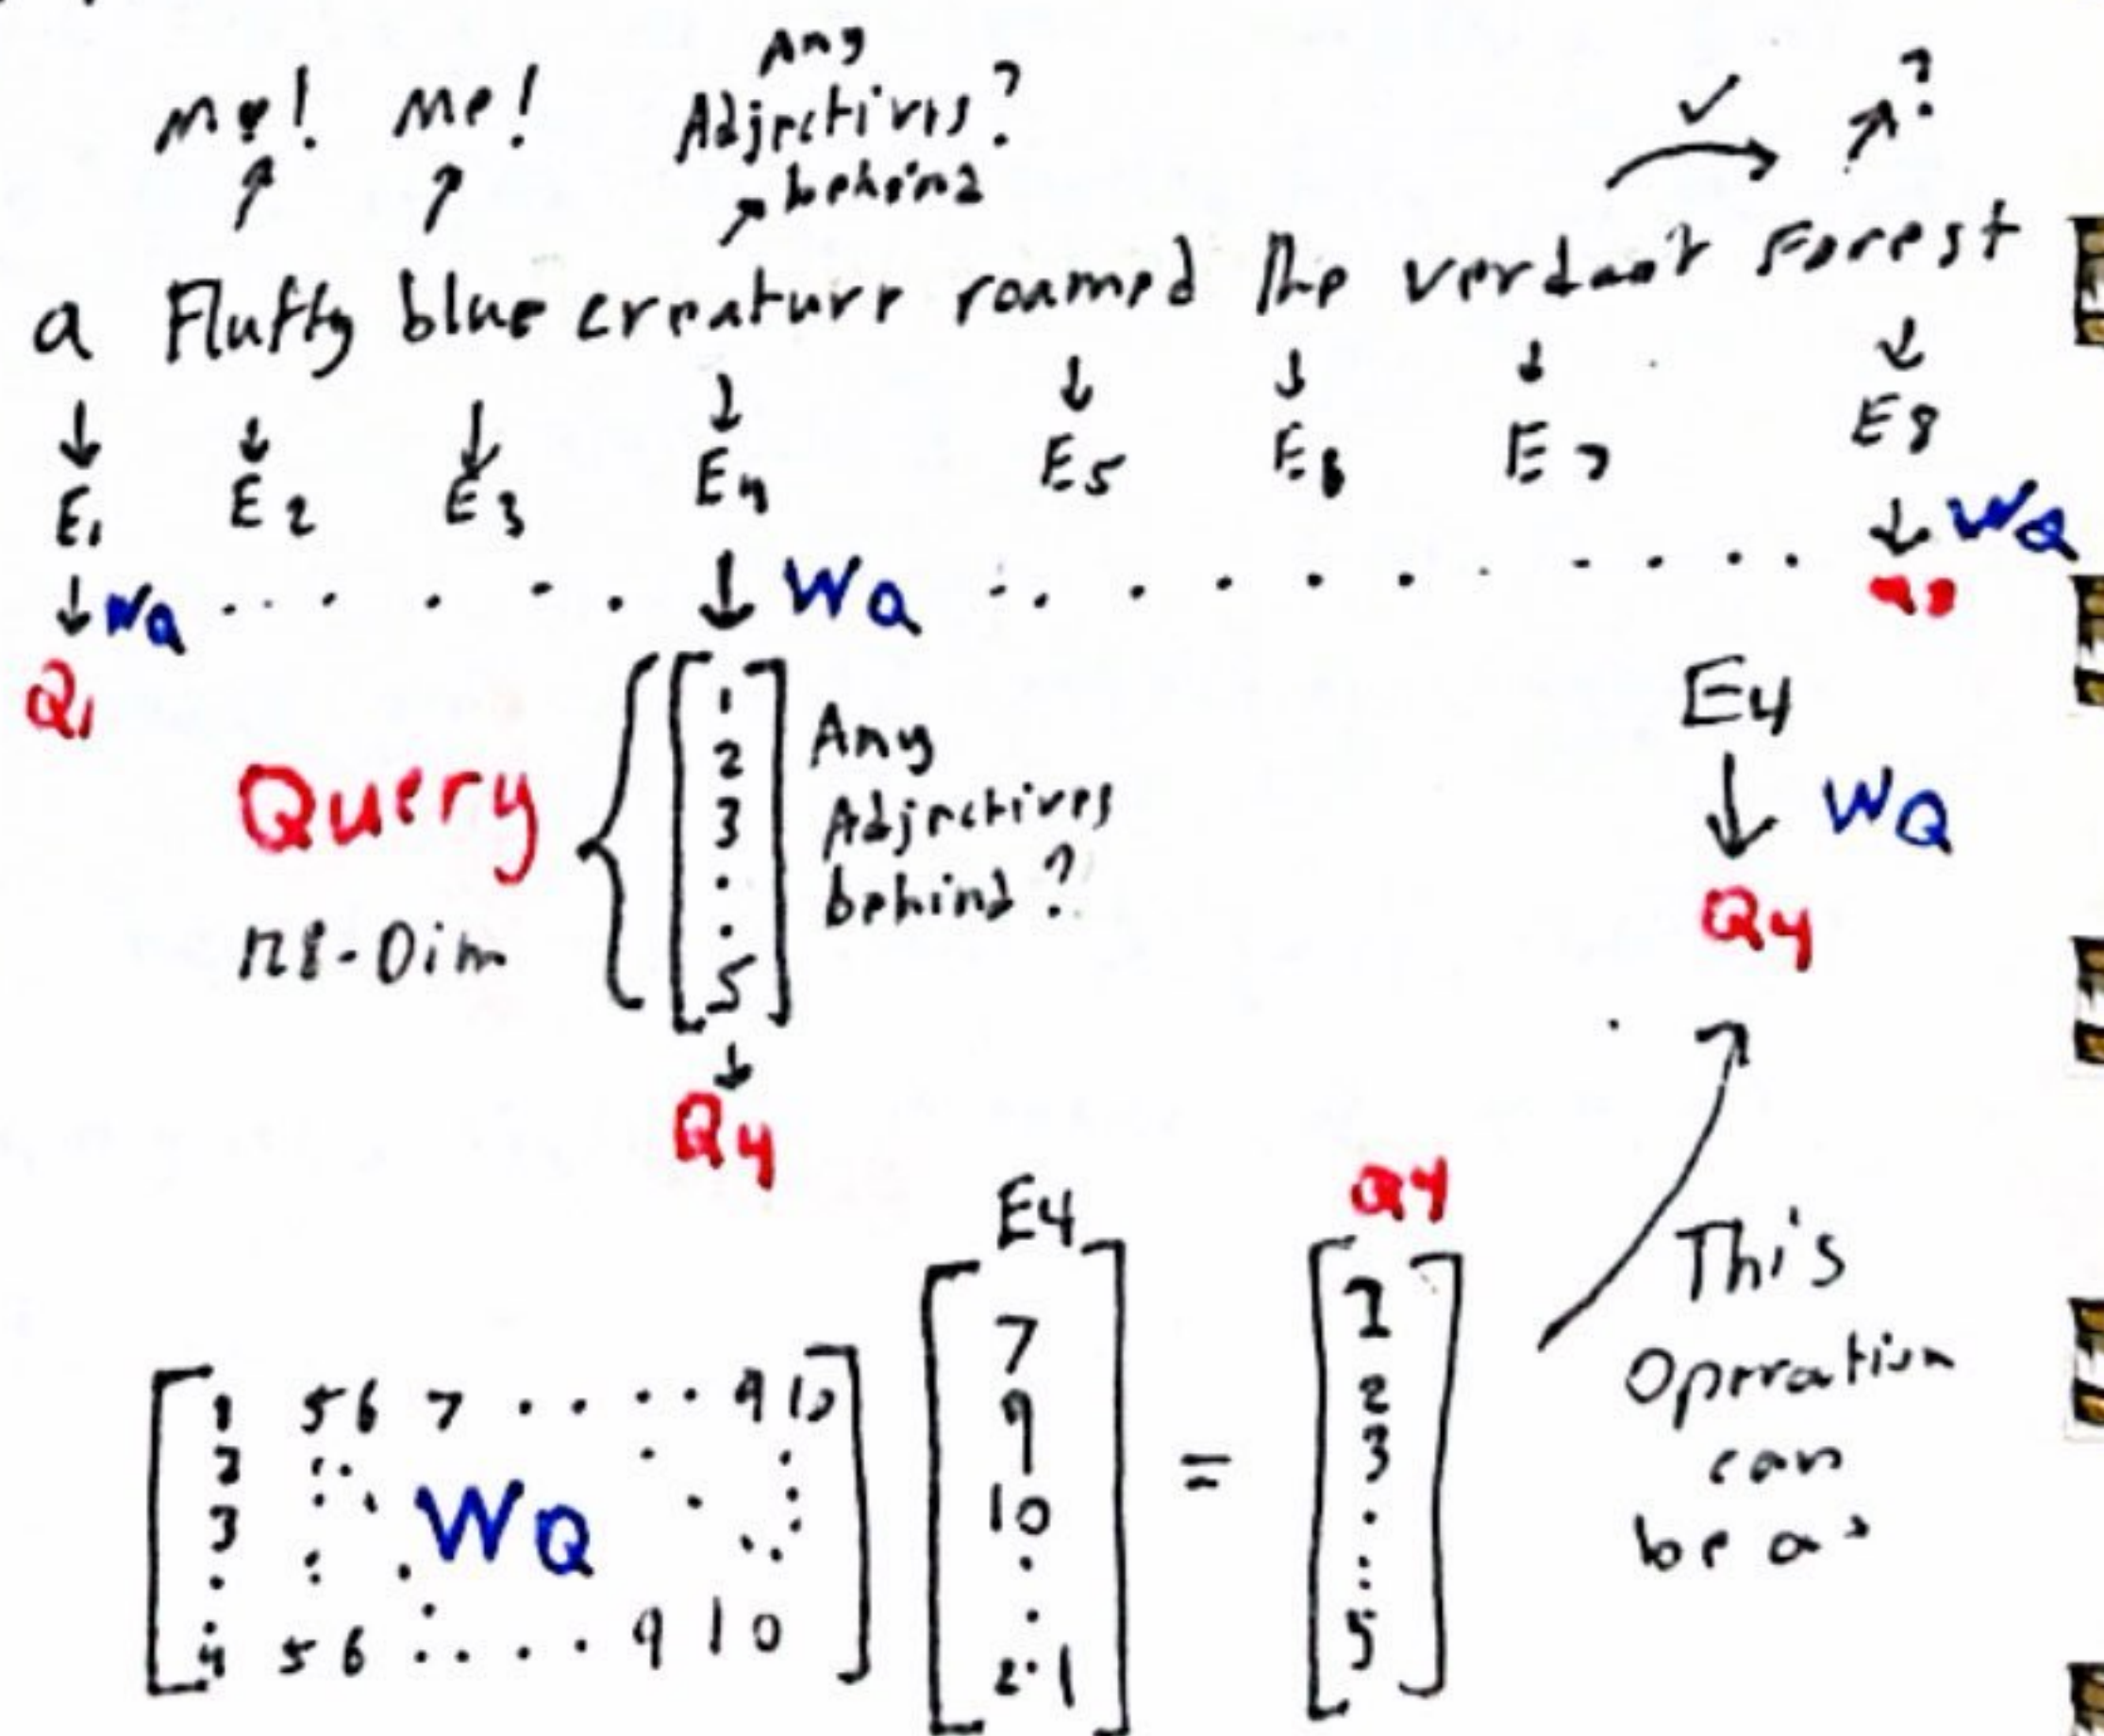 Any
me! me! Adjectives? ?
behind
a Fluffy blue creature roamed the verdant Forest
E1 E2 E3 E4 E5 E6 E7 E8
WQ . . . . . . WQ . . . . . . . . . . WQ
Q1
Query
[1 2 3 . . 5]
Any
Adjectives
behind?
Q4
E4
WQ
Q4
E4 Q4
[1 5 6 7 . . . . 9 10
2
3 WQ
.
4 5 6 . . . . 9 10]
[7 9 10 . . 2.1]
=
[1 2 3 . . . 5]
This
Operation
can
be as